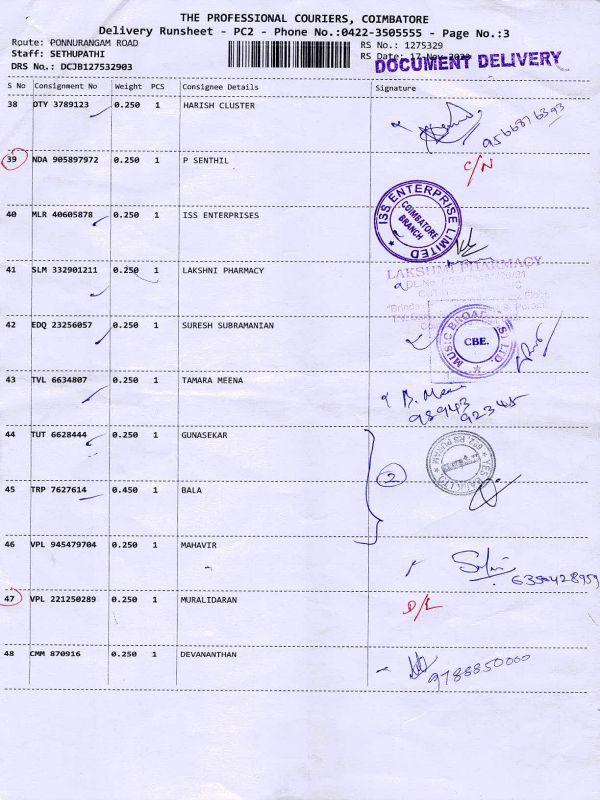 THE PROFESSIONAL COURIERS, COIMBATORE
Delivery Runsheet - PC2 - Phone No.:0422-3505555 - Page No.:3
Route: PONNURANGAM ROAD RS No.: 1275329
Staff: SETHUPATHI RS Date: 17-Nov
DRS No.: DCJB127532903 DOCUMENT DELIVERY
S No Consignment No Weight PCS Consignee Details Signature
38 DTY 3789123 0.250 1 HARISH CLUSTER
9566876393
39 NDA 905897972 0.250 1 P SENTHIL C/N
40 MLR 40605878 0.250 1 ISS ENTERPRISES
ISS ENTERPRISE LIMITED
COIMBATORE
BRANCH
41 SLM 332901211 0.250 1 LAKSHNI PHARMACY
LAKSHMI PHARMACY
42 EDQ 23256057 0.250 1 SURESH SUBRAMANIAN
CBE.
43 TVL 6634807 0.250 1 TAMARA MEENA
98943
92345
44 TUT 6628444 0.250 1 GUNASEKAR
2
45 TRP 7627614 0.450 1 BALA
46 VPL 945479704 0.250 1 MAHAVIR
47 VPL 221250289 0.250 1 MURALIDARAN D/L
48 CMM 870916 0.250 1 DEVANANTHAN
9788850000